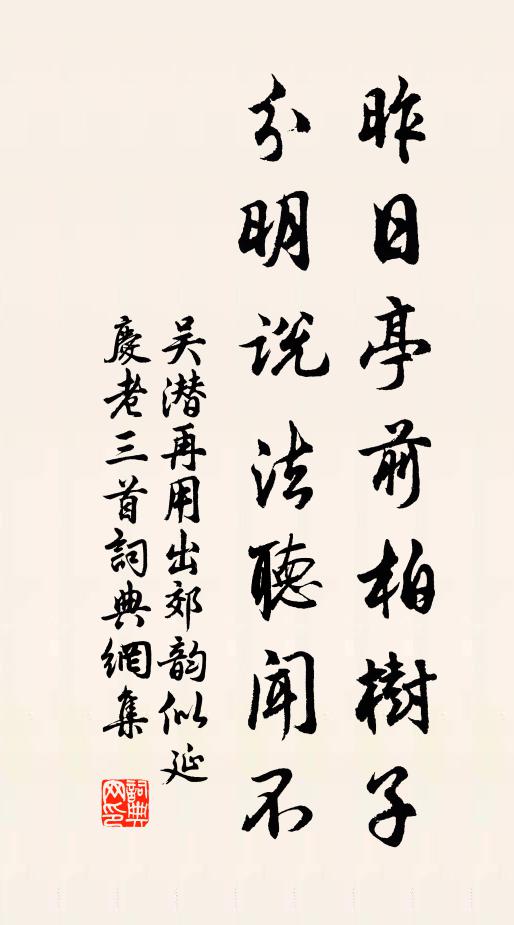 昨日亭前柏樹子
分明说法聽聞不
吴潜再用出郊韵似延
慶老三首詞典網集
詞典网印